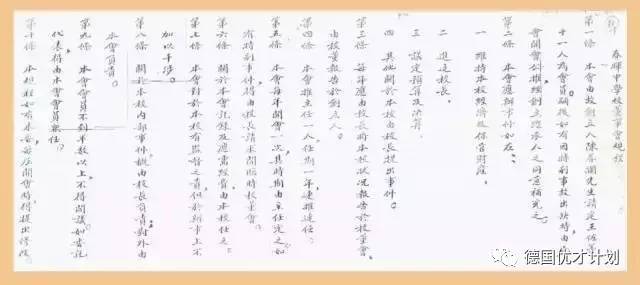 春暉中學校董事會規程
第一條 本會由創立人陳春瀾先生請定王佐等
十一人為會員嗣後如有因特別事故出缺時由
會開會公推經創立人之同意補充之
第二條 本會應辦事件如左
一 維持本校經濟及保管財產
二 進退校長
三 議定預算及決算
四 其他關於本校由校長提出事件
第三條 每年應由校長將本校狀況報告於校董會
由校董報告於創立人
第四條 本會推主任一人任期一年連推連任
第五條 本會每年開會一次其時期由主任定之如
有特別事件得由校長請求開臨時校董會
第六條 關於本會記錄並應需經費由本校任之
第七條 本會對於本校有監督之責但於辦事上不
加以干涉
第八條 關於本校內部事件概由校長負責對外由
本會負責
第九條 本會會員不到半數以上不得開議如有託
代表得由本會會員兼任
第十條 本規程如有未妥每年開會時得提出修改
德国优才计划